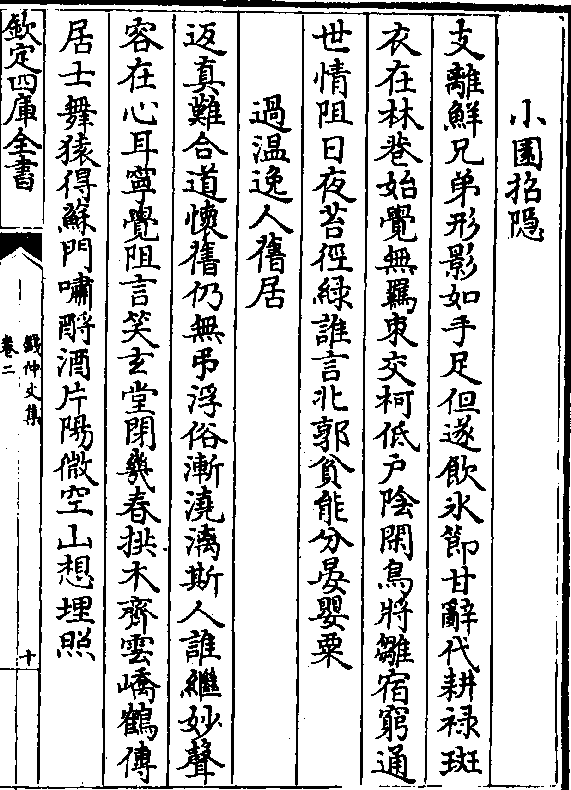 小園招隠
支離鮮兄弟形影如手足但遂飲氷節甘辭代耕禄斑
衣在林巷始覺無羈束交柯低戶陰閑鳥將雛宿窮通
世情阻日夜苔徑綠誰言北郭貧能分晏嬰粟
過温逸人舊居
返真難合道懷舊仍無弔浮俗漸澆漓斯人誰繼妙聲
容在心耳寧覺阻言笑玄堂閉幾春拱木齊雲嶠鶴傳
居士舞猿得蘇門嘯酹酒片陽微空山想埋照
欽定四庫全書
錢仲文集
卷二
十